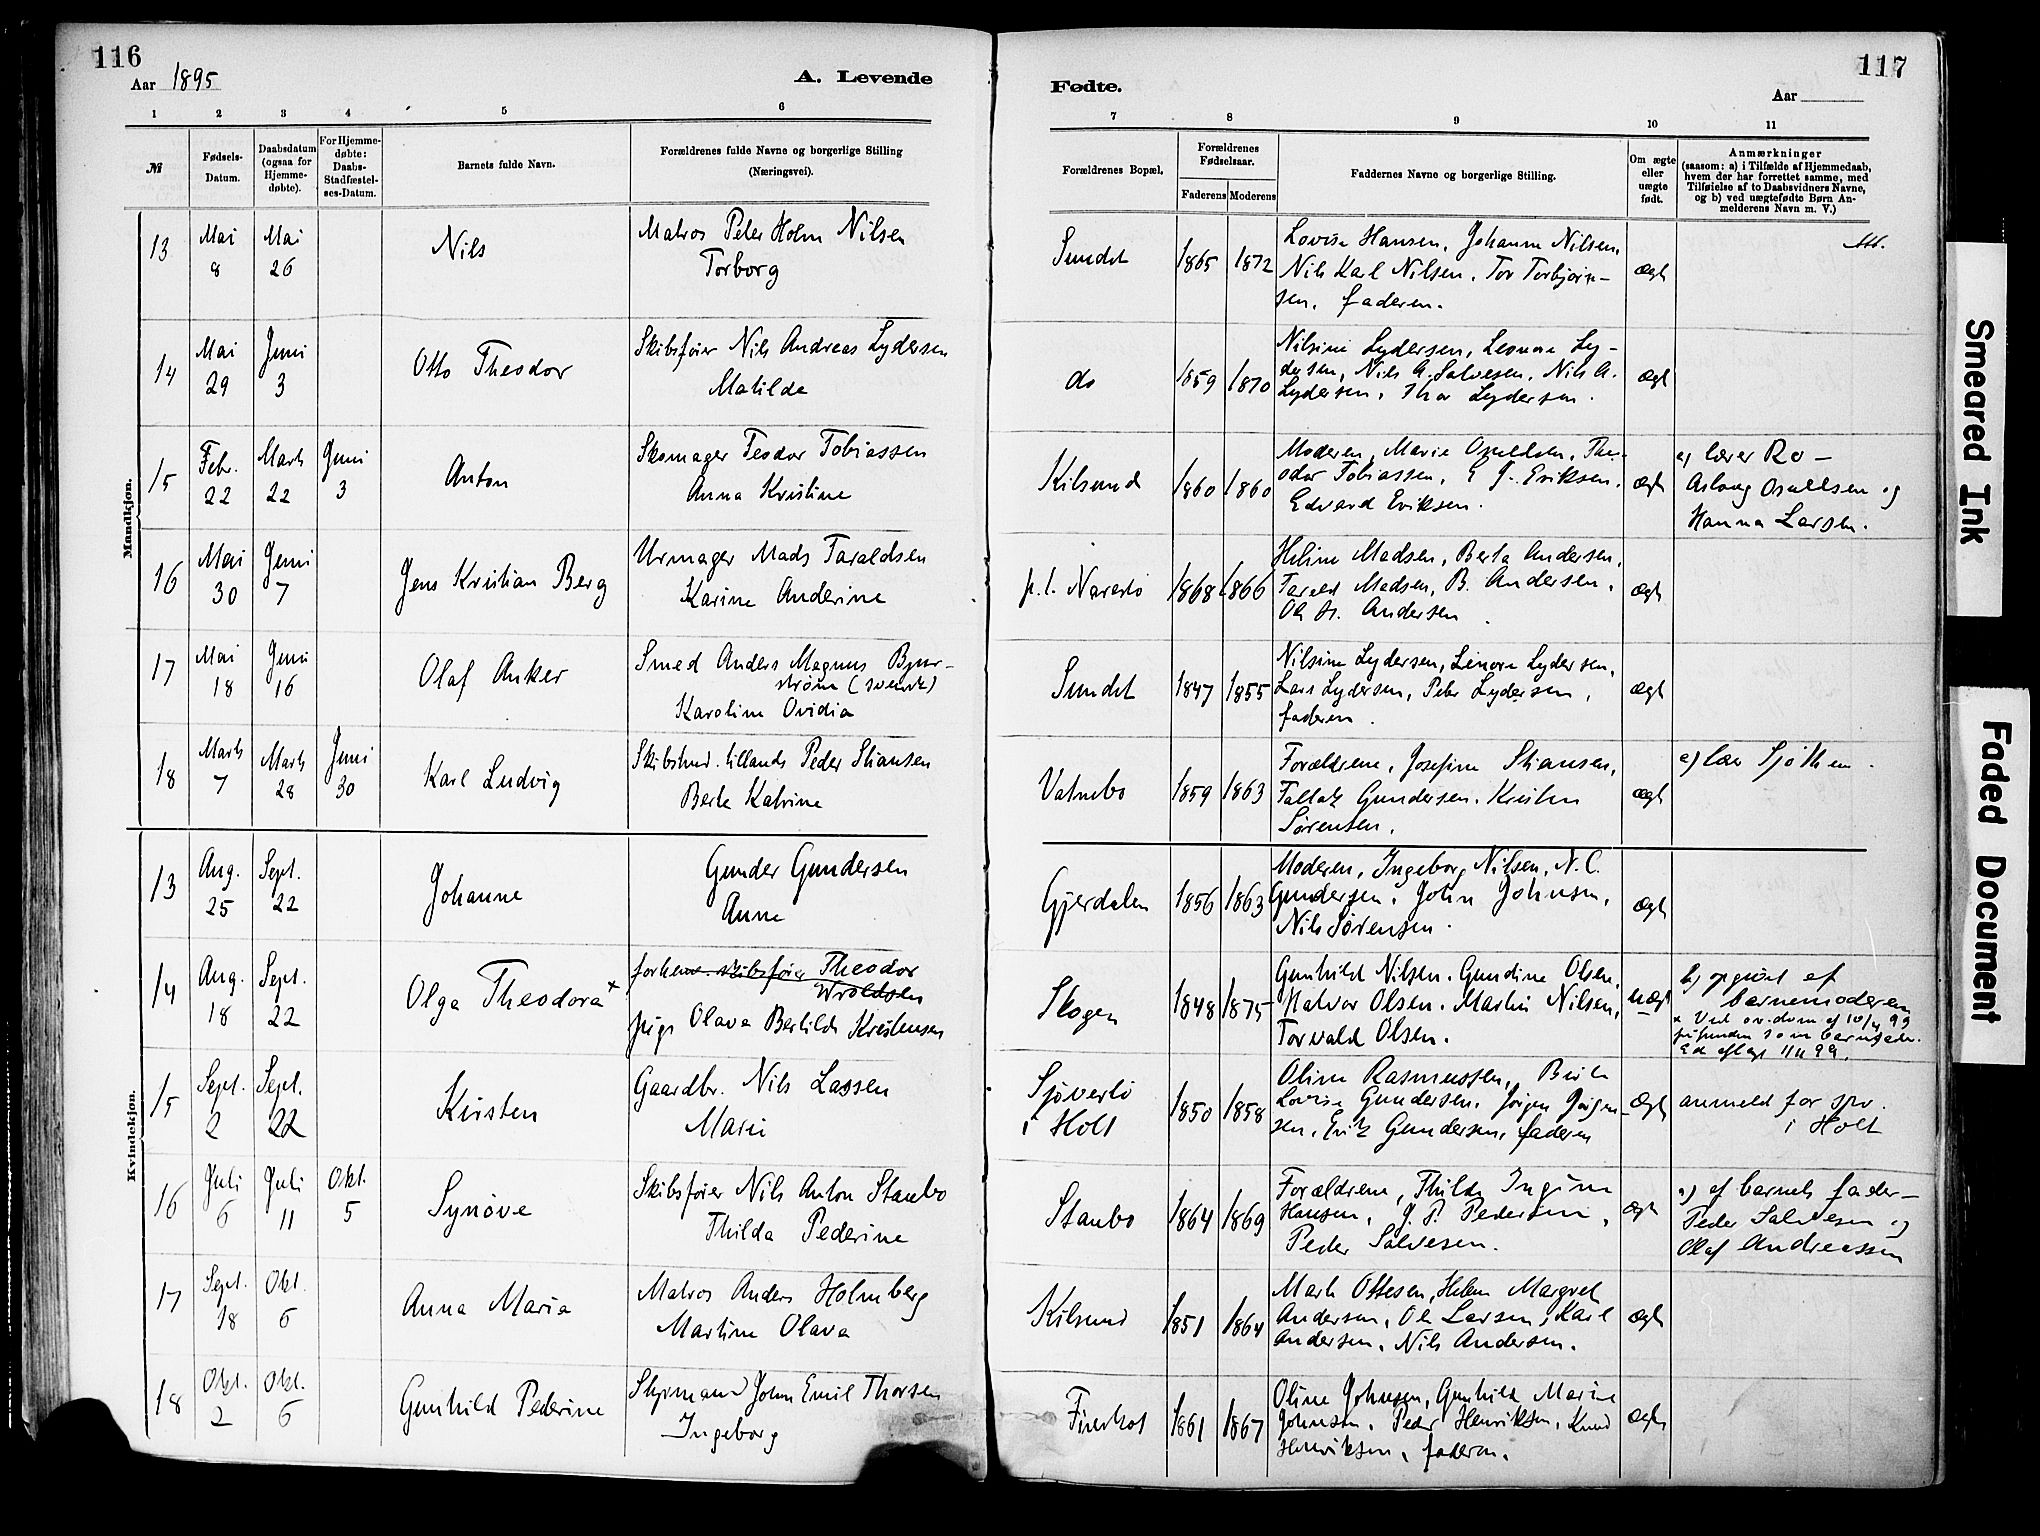 116
Aar 1895
A. Levende
1 2 3 4 5 6
№ Fødsels-Datum. Daabsdatum (ogsaa for Hjemmedøbte). For Hjemmedøbte: Daabs-Stadfæstelses-Datum. Barnets fulde Navn. Forældrenes fulde Navne og borgerlige Stilling (Næringsvei).
Mandkjøn.
13 Mai 8 Mai 26 Nils Matros Peter Holm Nilsen
Torborg
14 Mai 29 Juni 3 Otto Theodor Skibsfører Nils Andreas Lydersen
Matilde
15 Febr. 22 Marts 22 Juni 3 Anton Skomager Teodor Tobiassen
Anna Kristine
16 Mai 30 Juni 7 Jens Kristian Berg Urmager Mads Taraldsen
Karine Anderine
17 Mai 18 Juni 16 Olaf Anker Smed Anders Magnus Bjur-
strøm (svensk)
Karoline Ovidia
18 Marts 7 Marts 28 Juni 30 Karl Ludvig Skibstmd. tillands Peder Stiansen
Berte Katrine
Kvindekjøn.
13 Aug. 25 Sept. 22 Johanne Gunder Gundersen
Anne
14 Aug. 18 Sept. 22 Olga Theodora x forhenv. skibsfører Theodor
Wroldsen
pige Olava Bertilde Kristensen
15 Sept. 2 Sept. 22 Kirsten Gaardbr. Nils Lassen
Marie
16 Juli 6 Juli 11 Okt. 5 Synøve Skibsfører Nils Anton Staubo
Thilda Pederine
17 Sept. 18 Okt. 6 Anna Maria Matros Anders Holmberg
Martine Olava
18 Okt. 2 Okt. 6 Gunhild Pederine Styrmand John Emil Thorsen
Ingeborg
117
Fødte.
Aar
7 8 9 10 11
Forældrenes Bopæl. Forældrenes Fødselsaar. Faderens Moderens Faddernes Navne og borgerlige Stilling. Om ægte eller uægte født. Anmærkninger
(saasom: a) i Tilfælde af Hjemmedaab,
hvem der har forrettet samme, med
Tilføielse af to Daabsvidners Navne,
og b) ved uægtefødte Børn An-
melderens Navn m. V.)
Sundet 1865 1872 Lovise Hansen, Johanne Nilsen,
Nils Karl Nilsen, Tor Torbjørn-
sen, faderen. ægte
do 1859 1870 Nilsine Lydersen, Leonore Ly-
dersen, Nils A. Salvesen, Nils A.
Lydersen, Thor Lydersen. ægte
Kilsund 1860 1860 Moderen, Marie Osuldsen, The-
odor Tobiassen, E J. Eriksen,
Edvard Eriksen. ægte a) lærer Ro-
Aslaug Osuldsen og
Hanna Larsen.
p.t. Narestø 1868 1866 Heline Madsen, Berta Andersen,
Tarald Madsen, B. Andersen,
Ole A. Andersen ægte
Sundet 1847 1855 Nilsine Lydersen, Linore Lydersen,
Lars Lydersen, Peter Lydersen,
faderen. ægte
Vatnebo 1859 1863 Forældrene, Josefine Stiansen,
Tallak Gundersen, Kristen
Sørensen. ægte a) lær Sjøthun.
Gjerdalen 1856 1863 Moderen, Ingeborg Nilsen, N. C.
Gundersen, John Johnsen,
Nils Sørensen. ægte
Skogen 1848 1875 Gunhild Nilsen, Gundine Olsen,
Halvor Olsen, Martin Nilsen,
Torvald Olsen. uægte b) opgivet af
barnemoderen
x Ved ov.dom af 10/4 99
frifunden som barnefader.
Ed aflagt 11/4 99.
Sjøverstø
i Holt 1850 1858 Oline Rasmussen, Berte
Lovise Gundersen, Jørgen Jørgen-
sen, Erik Gundersen, faderen ægte anmeld for spr.
i Holt
Staubo 1864 1869 Forældrene, Thilda Ingine
Hansen, J. P. Pedersen,
Peder Salvesen. ægte a) af barnets fader-
Peder Salvesen og
Olaf Andreassen
Kilsund 1851 1864 Marte Ottesen, Helene Margret
Andersen, Ole Larsen, Karl
Andersen, Nils Andersen. ægte
1861 1867 Oline Johnsen, Gunhild Marie
Johnsen, Peder Henriksen, Knud
Henriksen, faderen. ægte
Smeared Ink
Faded Document